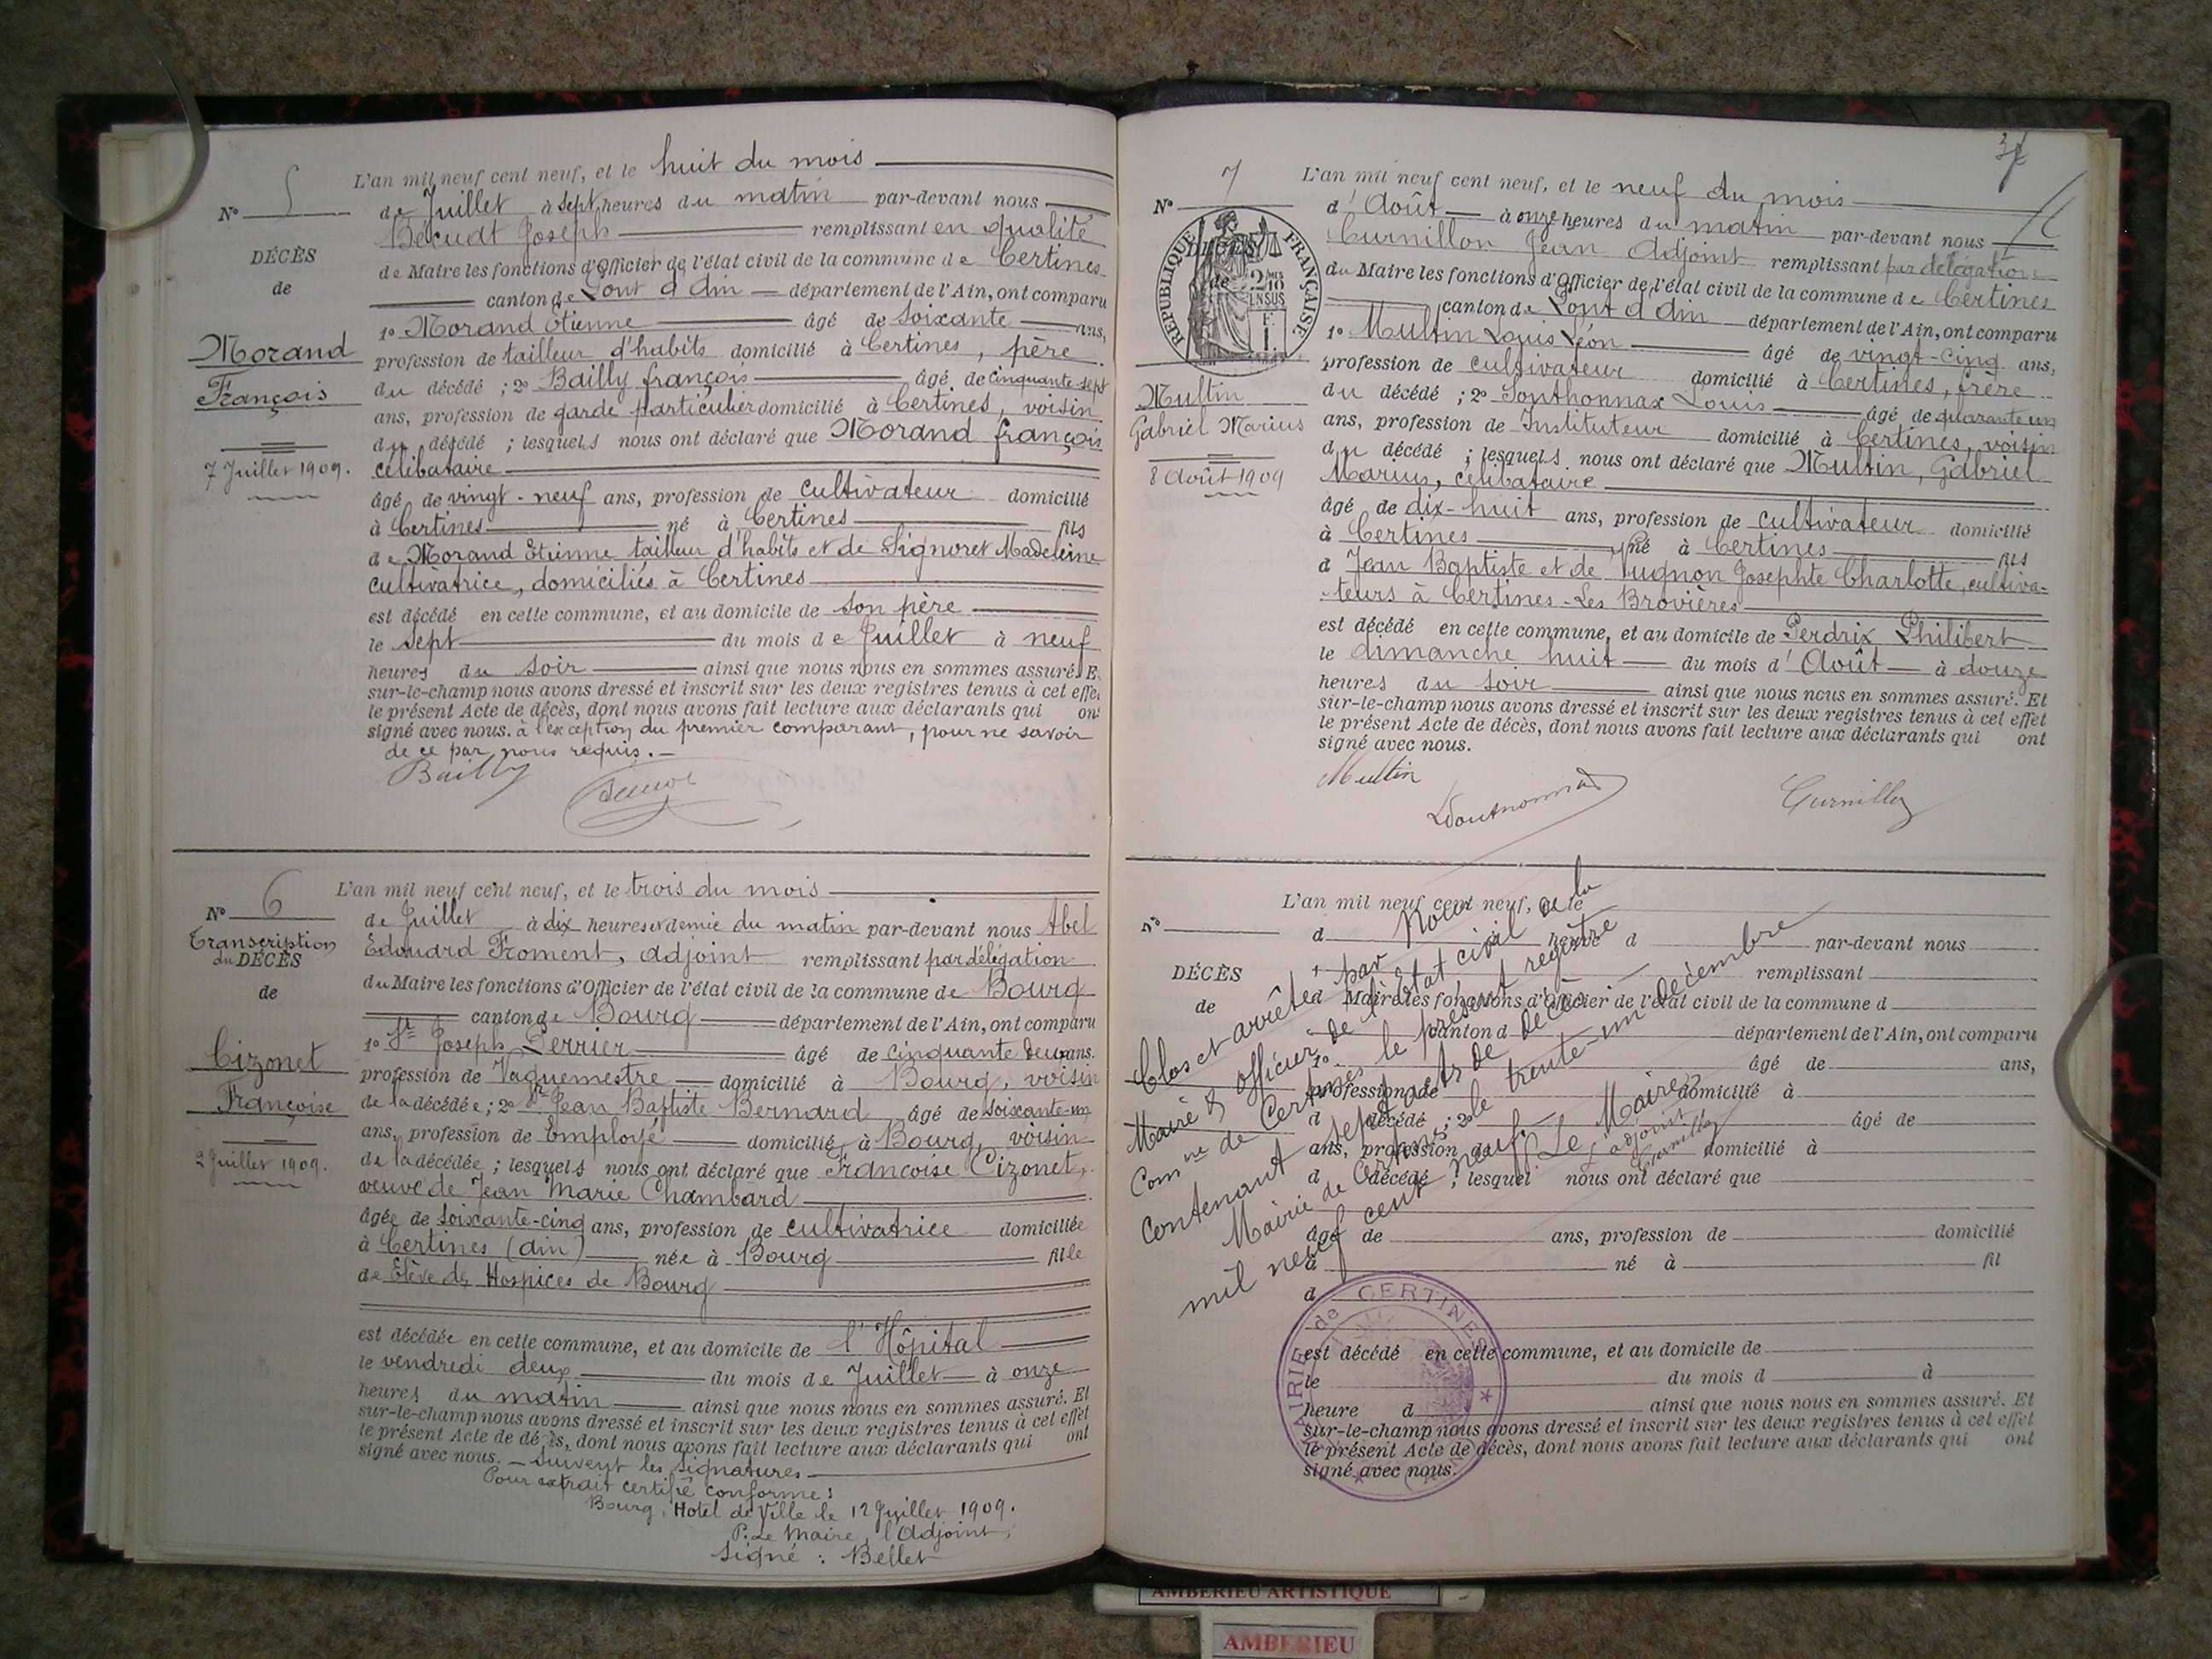 L'an mil neuf cent neuf, et le huit du mois
N° 5
de Juillet à sept heures du matin par-devant nous
Joseph remplissant en qualité
DÉCÈS
de Maire les fonctions d'Officier de l'état civil de la commune de Certines
de
canton de Pont d'Ain département de l'Ain, ont comparu
1° Morand Étienne âgé de soixante ans,
Morand
profession de tailleur d'habits domicilié à Certines, père
François
du décédé ; 2° Bailly françois âgé de cinquante-sept
ans, profession de garde particulier domicilié à Certines, voisin
du décédé ; lesquels nous ont déclaré que Morand françois
7 Juillet 1909.
célibataire
âgé de vingt-neuf ans, profession de cultivateur domicilié
à Certines né à Certines fils
de Morand Etienne tailleur d'habits et de Signoret Madeleine
cultivatrice, domiciliés à Certines
est décédé en cette commune, et au domicile de son père
le sept du mois de Juillet à neuf
heures du soir ainsi que nous nous en sommes assuré. E
sur-le-champ nous avons dressé et inscrit sur les deux registres tenus à cet effe
le présent Acte de décès, dont nous avons fait lecture aux déclarants qui ont
signé avec nous. à l'exception du premier comparant, pour ne savoir
de ce par nous requis. —
Bailly
L'an mil neuf cent neuf, et le trois du mois
N° 6
Transcription
du DÉCÈS
de
de Juillet à dix heures et demie du matin par-devant nous Abel
Edouard Froment, adjoint remplissant par délégation
du Maire les fonctions d'Officier de l'état civil de la commune de Bourg
canton de Bourg département de l'Ain, ont comparu
1° Sr Joseph Perrier âgé de cinquante deux ans.
Cizonet
profession de Vaguemestre domicilié à Bourg, voisin
Françoise
de la décédée ; 2° Sr Jean Baptiste Bernard âgé de soixante-un
ans, profession de Employé domicilié à Bourg, voisin
2 Juillet 1909.
de la décédée ; lesquels nous ont déclaré que Françoise Cizonet,
veuve de Jean Marie Chambard
âgée de soixante-cinq ans, profession de cultivatrice domiciliée
à Certines (Ain) née à Bourg fille
de Elève des Hospices de Bourg
est décédée en cette commune, et au domicile de l'Hôpital
le vendredi deux du mois de Juillet à onze
heures du matin ainsi que nous nous en sommes assuré. Et
sur-le-champ nous avons dressé et inscrit sur les deux registres tenus à cet effet
le présent Acte de décès, dont nous avons fait lecture aux déclarants qui ont
signé avec nous. — Suivent les signatures
Pour extrait certifié conforme :
Bourg, Hotel de Ville le 12 Juillet 1909.
P. Le Maire, l'Adjoint,
Signé : Bellet
L'an mil neuf cent neuf, et le neuf du mois
N° 7
d'Août à onze heures du matin par-devant nous
Curnillon Jean Adjoint remplissant par délégation
DÉCÈS
de
RÉPUBLIQUE FRANÇAISE
du Maire les fonctions d'Officier de l'état civil de la commune de Certines
canton de Pont d'Ain département de l'Ain, ont comparu
1° Multin Louis Léon âgé de vingt-cinq ans,
profession de cultivateur domicilié à Certines, frère
Multin
du décédé ; 2° Sonthonnax Louis âgé de quarante un
Gabriel Marius
ans, profession de Instituteur domicilié à Certines, voisin
du décédé ; lesquels nous ont déclaré que Multin, Gabriel
8 Août 1909
Marius, célibataire
âgé de dix-huit ans, profession de cultivateur domicilié
à Certines né à Certines fils
d Jean Baptiste et de Vugnon Josephte Charlotte, cultiva-
teurs à Certines - Les Brovières
est décédé en cette commune, et au domicile de Perdrix Philibert
le dimanche huit du mois d'Août à douze
heures du soir ainsi que nous nous en sommes assuré. Et
sur-le-champ nous avons dressé et inscrit sur les deux registres tenus à cet effet
le présent Acte de décès, dont nous avons fait lecture aux déclarants qui ont
signé avec nous.
Multin
Curnillon
L'an mil neuf cent neuf, et le
N°
d heure d par-devant nous
remplissant
DÉCÈS
de
d Maire les fonctions d'Officier de l'état civil de la commune d
canton d département de l'Ain, ont comparu
1° âgé de ans,
profession de domicilié à
d décédé ; 2° âgé de
ans, profession de domicilié à
d décédé ; lesquel nous ont déclaré que
âgé de ans, profession de domicilié
à né à fil
d
est décédé en cette commune, et au domicile de
le du mois d à
heure d ainsi que nous nous en sommes assuré. Et
sur-le-champ nous avons dressé et inscrit sur les deux registres tenus à cet effet
le présent Acte de décès, dont nous avons fait lecture aux déclarants qui ont
signé avec nous.
Clos et arrêté par Nous
Maire & officier de l'état civil de la
Comne de Certines le présent registre
contenant sept acts de décès
Mairie de Certines le trente-un décembre
mil neuf cent neuf. Le Maire
l'adjoint
MAIRIE de CERTINES
AMBERIEU ARTISTIQUE
AMBERIEU